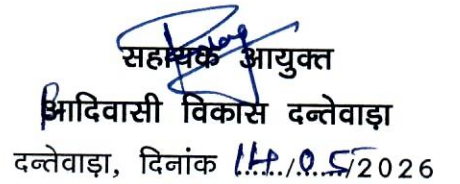 सहायक आयुक्त
आदिवासी विकास दन्तेवाड़ा
दन्तेवाड़ा, दिनांक 14/05/2026